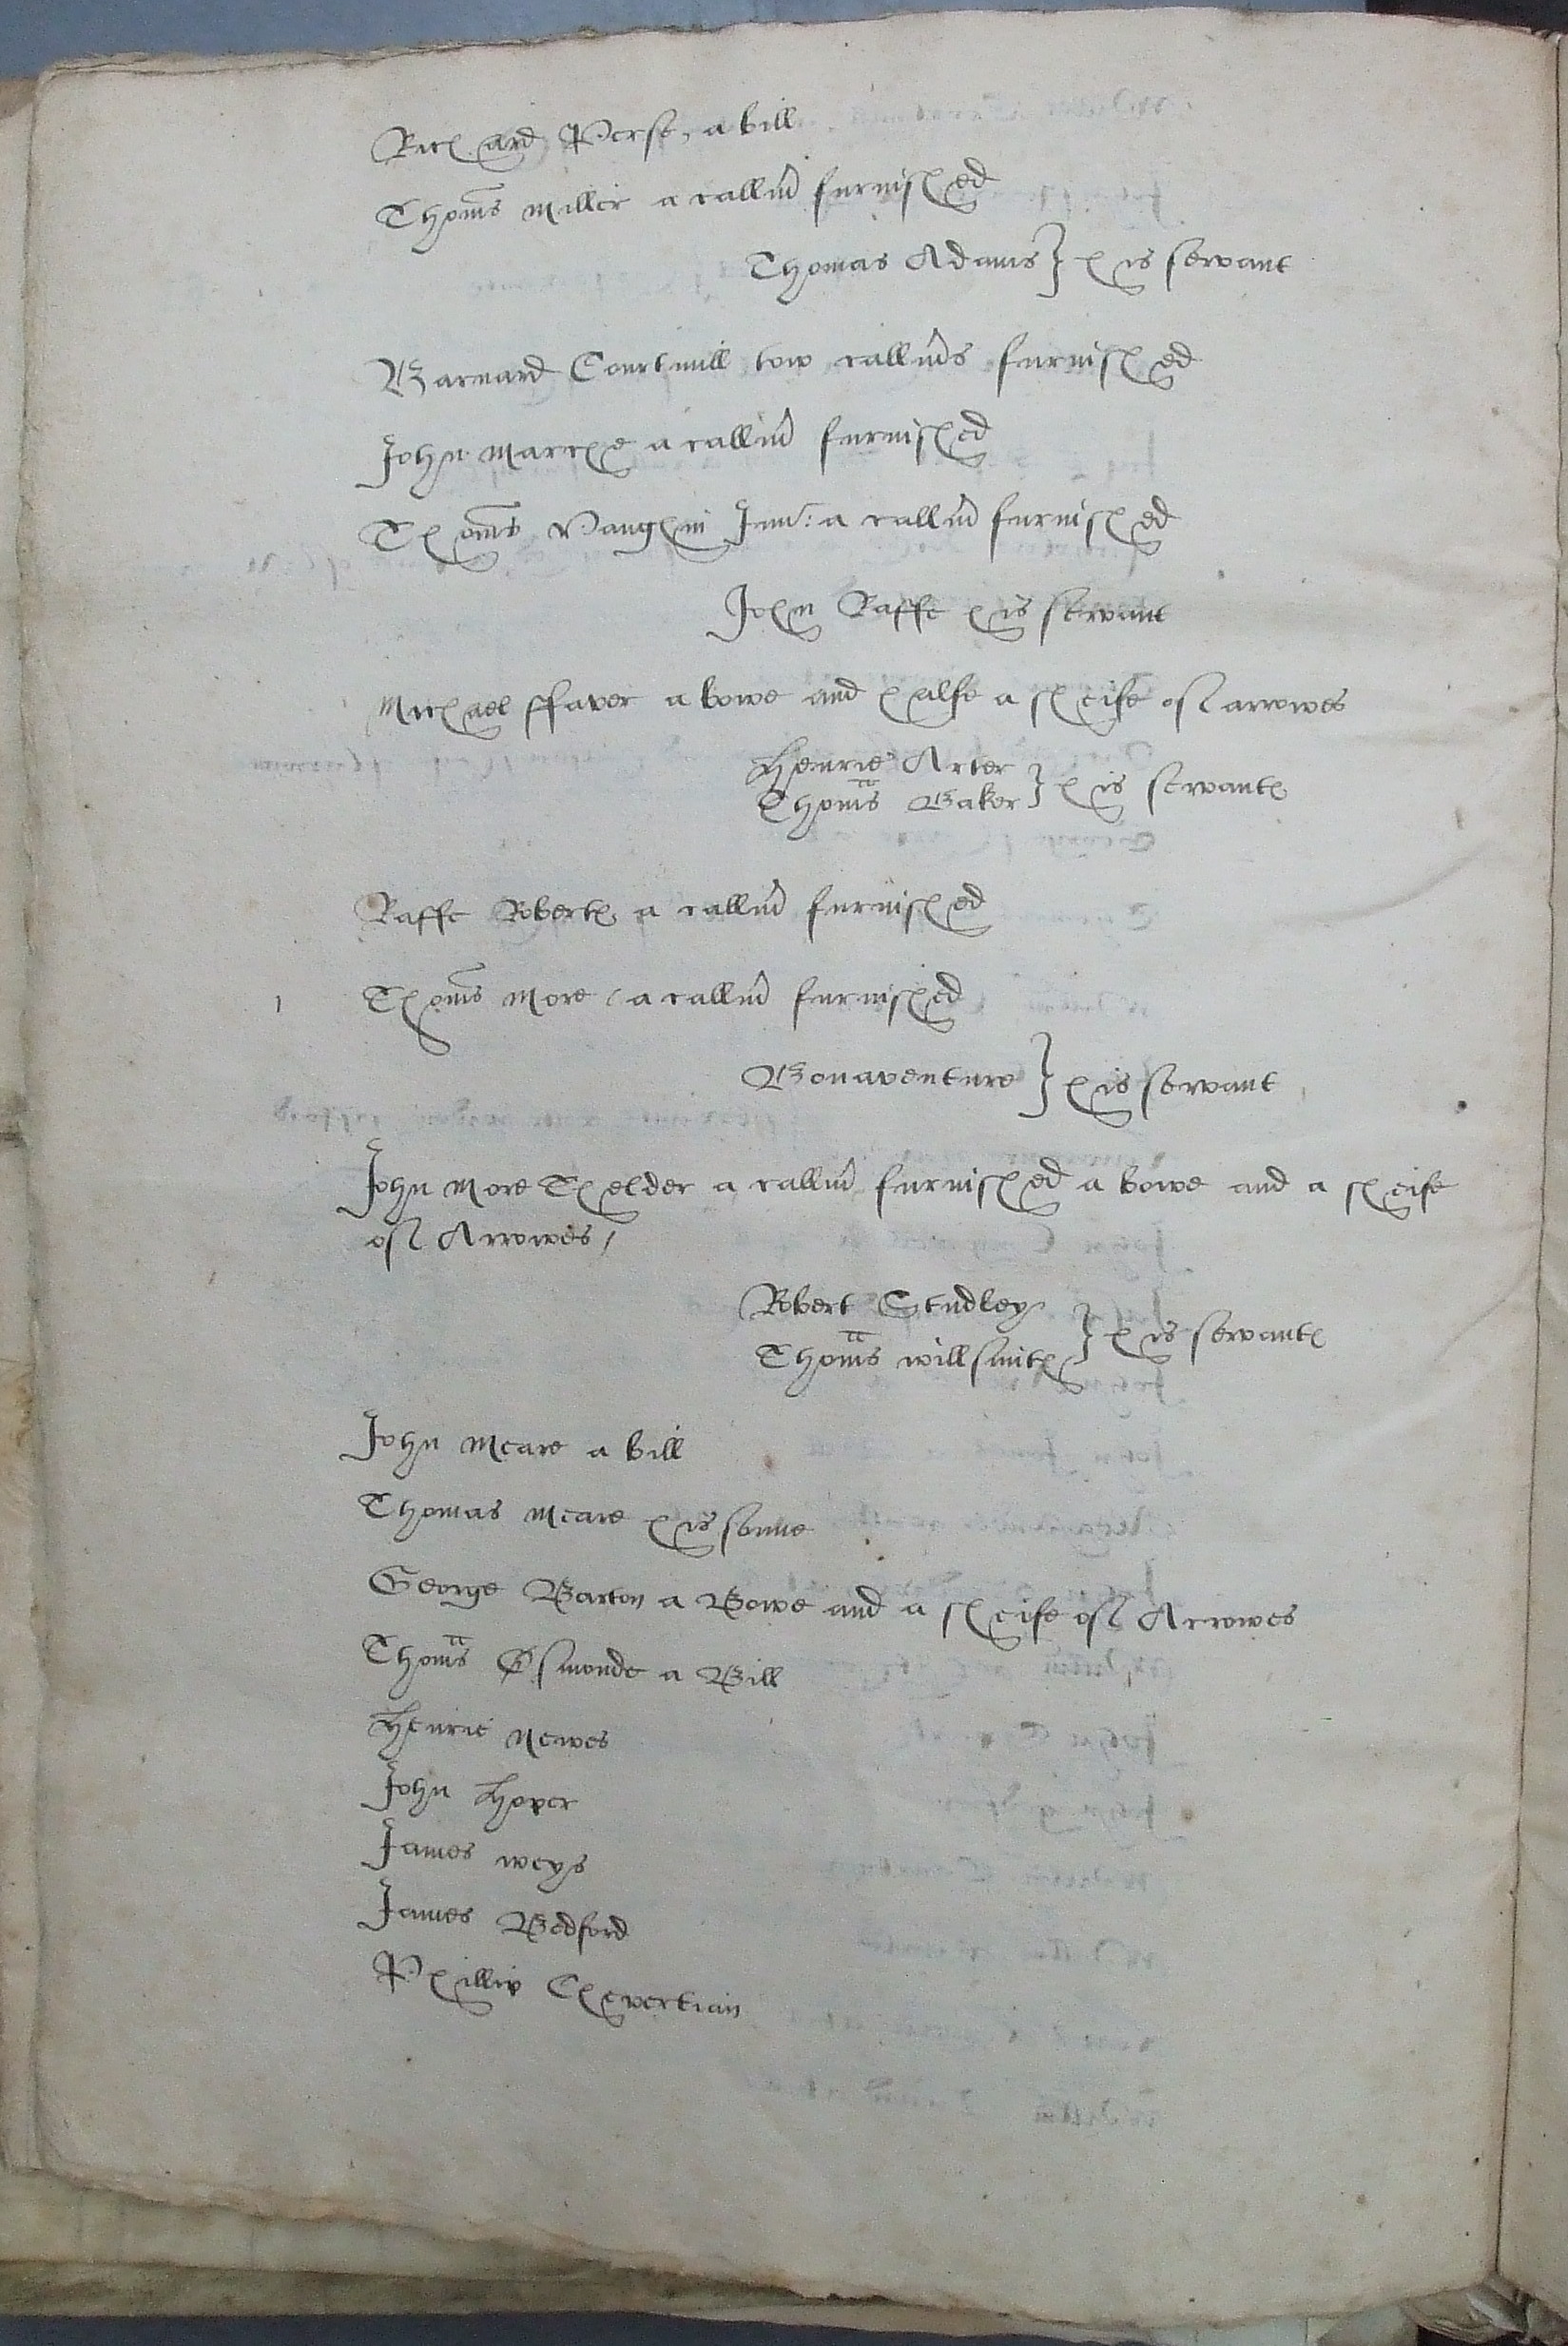 Richard Perse, a bill
Thoms Miller a callm̃ furnished
Thomas Adams } his servant
Barnard Courtmill tow callm̃s furnished
John Marche a callm̃ furnished
Thoms Vaughin Junr: a callm̃ furnished
John Raffe his servant
Michael ffaver a bowe and halfe a sheife of arrowes
Henrie Arter
Thoms Baker } his servantes
Raffe Robertes a callm̃ furnished
Thoms More / a callm̃ furnished
Bonaventure } his servant
John More Thelder a callm̃ furnished a bowe and a sheife
of Arrowes /
Robert Studley
Thoms willsmith } his servantes
John Meare a bill
Thomas Meare his sonne
George Barton a Bowe and a sheife of Arrowes
Thoms Osmonde a Bill
Henrie Newes
John Hoper
James weys
James Bedford
Phillip Chepertian